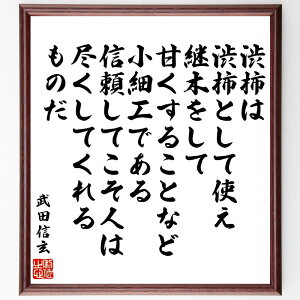 渋柿は
渋柿として使え
継木をして
甘くすることなど
小細工である
信頼してこそ人は
尽くしてくれる
ものだ
武田信玄